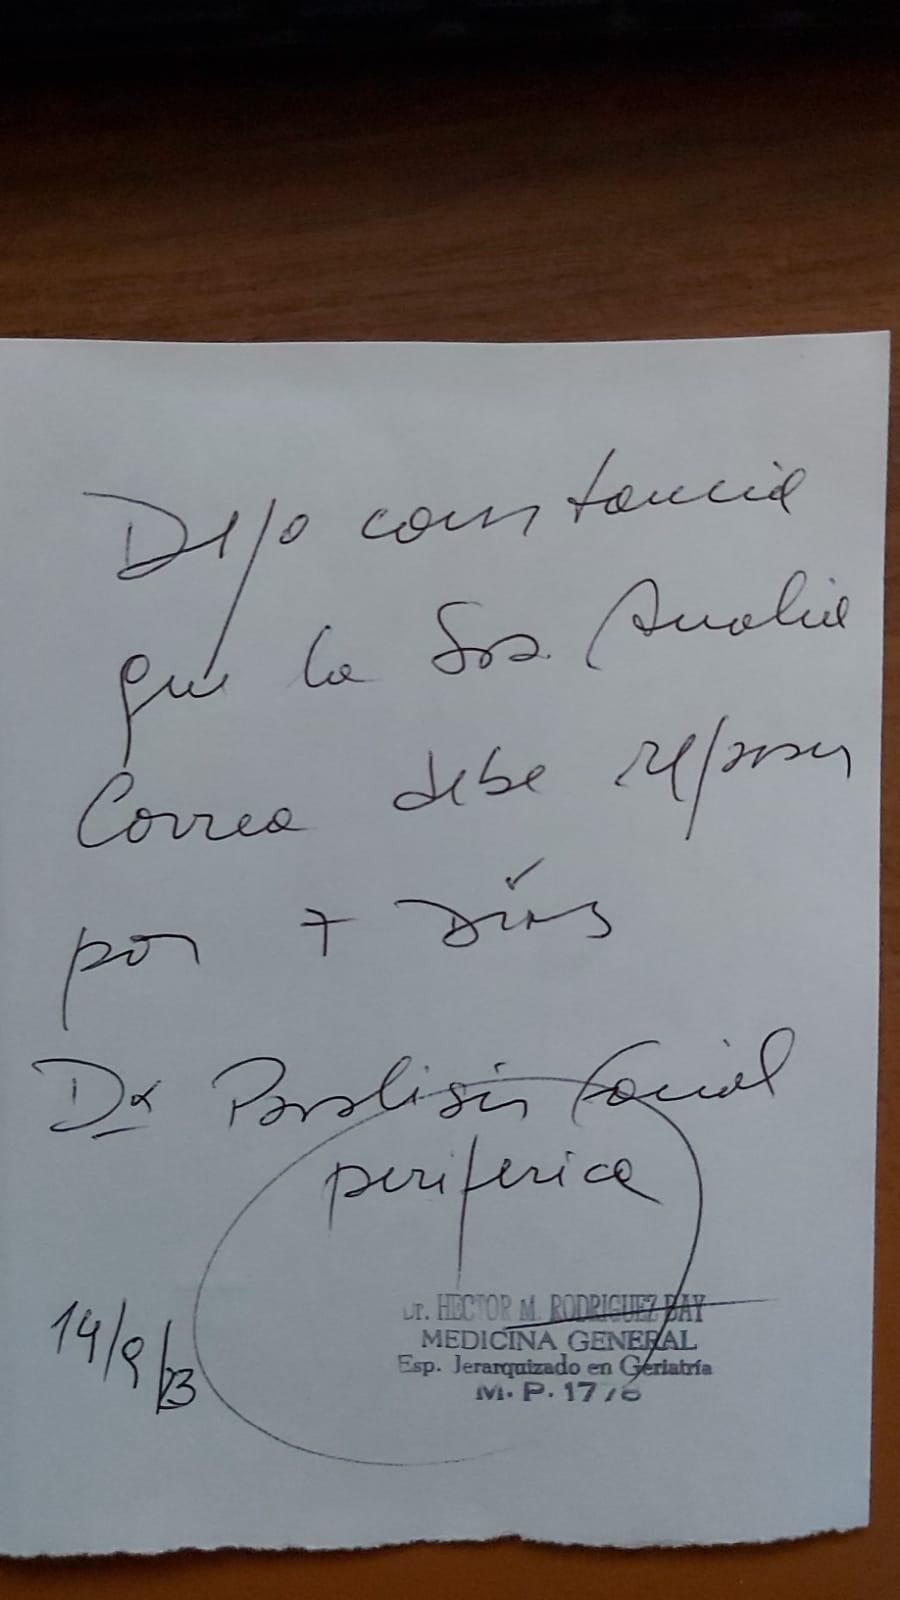 Dejo constancia
que la Sra. Analia
Correa debe reposar
por 7 Días
Dx Paralisis Facial
periferica
14/9/23
Dr. HECTOR M. RODRIGUEZ BAY
MEDICINA GENERAL
Esp. Jerarquizado en Geriatría
M. P. 1778